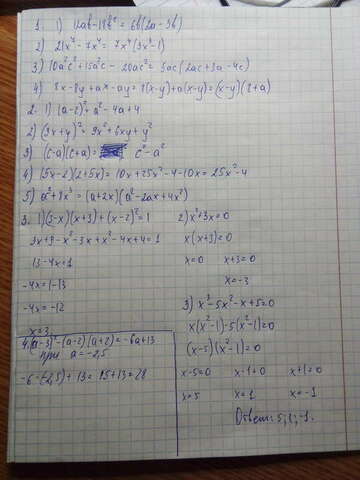 1. 1) 12ab-18b² = 6b(2a-3b)
2) 21x⁷-7x⁴ = 7x⁴(3x³-1)
3) 10a²c²+15a²c-20ac² = 5ac(2ac+3a-4c)
4) 8x-8y+ax-ay = 8(x-y)+a(x-y) = (x-y)(8+a)
2. 1) (a-2)² = a²-4a+4
2) (3x+y)² = 9x²+6xy+y²
3) (c-a)(c+a) = c²-a²
4) (5x-2)(2+5x) = 10x+25x²-4-10x = 25x²-4
5) a³+8x³ = (a+2x)(a²-2ax+4x²)
3. 1) (3-x)(x+3)+(x-2)² = 1
3x+9-x²-3x+x²-4x+4 = 1
13-4x = 1
-4x = 1-13
-4x = -12
x = 3
2) x²+3x = 0
x(x+3) = 0
x = 0 x+3 = 0
x = -3
3) x³-5x²-x+5 = 0
x(x²-1)-5(x²-1) = 0
(x-5)(x²-1) = 0
x-5 = 0 x-1 = 0 x+1 = 0
x = 5 x = 1 x = -1
Ответ: 5; 1; -1.
4. (a-3)²-(a-2)(a+2) = -6a+13
при a = -2,5
-6·(-2,5)+13 = 15+13 = 28